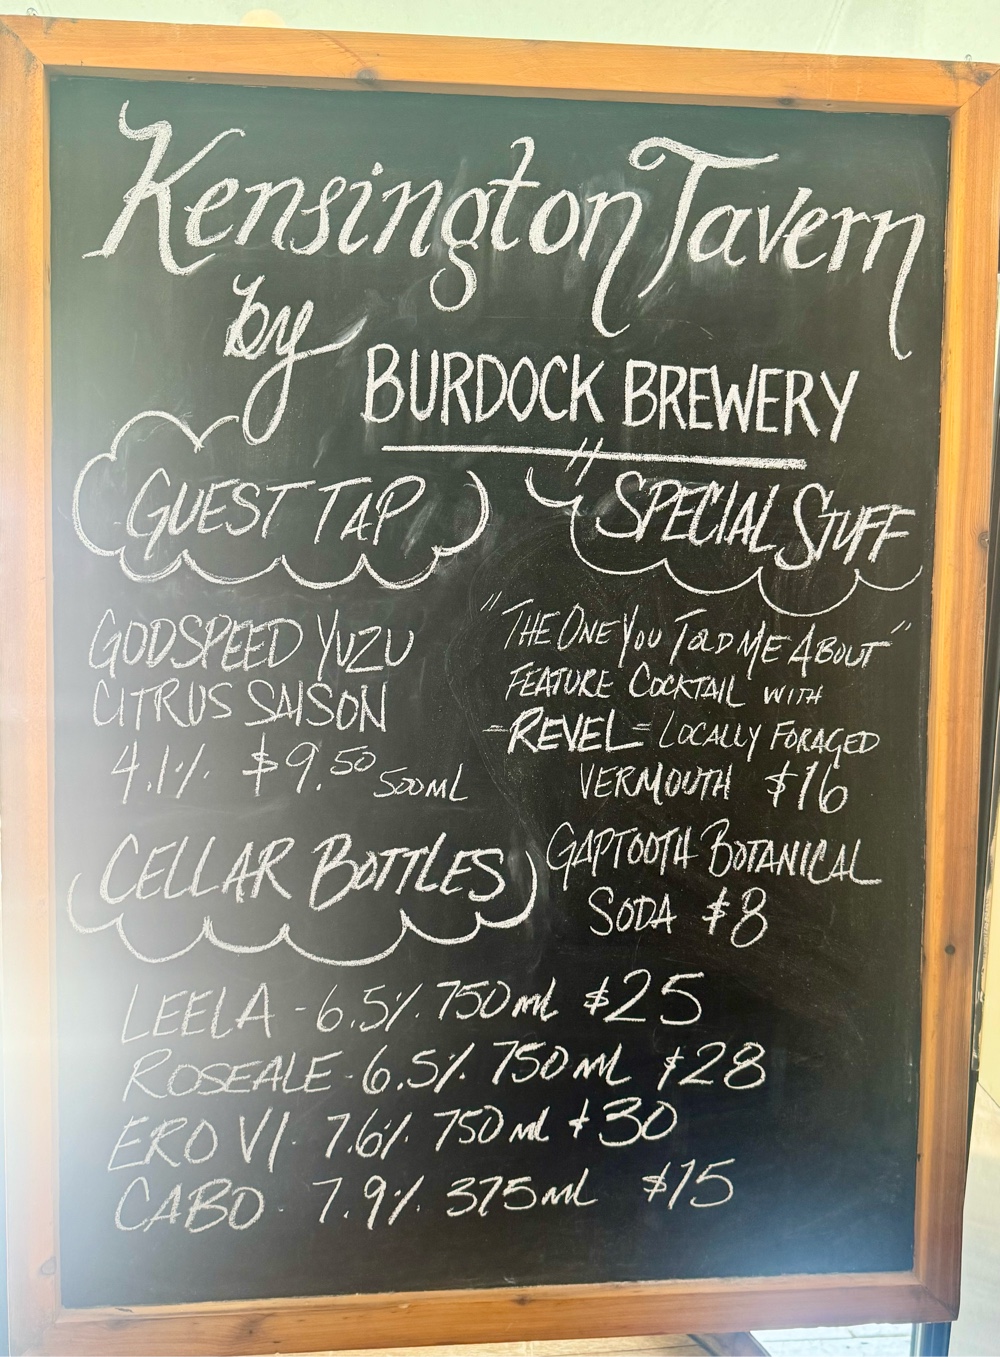 Kensington Tavern
by
BURDOCK BREWERY
GUEST TAP
GODSPEED YUZU
CITRUS SAISON
4.1% $9.50 500ML
SPECIAL STUFF
"THE ONE YOU TOLD ME ABOUT"
FEATURE COCKTAIL WITH
-REVEL= LOCALLY FORAGED
VERMOUTH $16
GAPTOOTH BOTANICAL
SODA $8
CELLAR BOTTLES
LEELA - 6.5% 750ml $25
ROSEALE - 6.5% 750ml $28
ERO VI 7.6% 750ml $30
CABO 7.9% 375ml $15